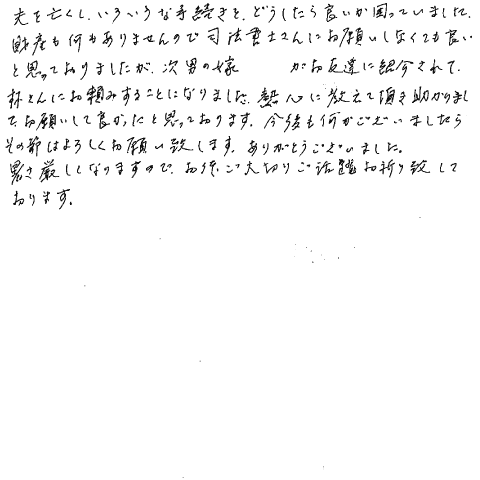 夫を亡くし、いろいろな手続きを、どうしたら良いか困っていました。
財産も何もありませんので司法書士さんにお願いしなくても良い
と思っておりましたが、次男の嫁 がお友達に紹介されて、
林さんにお頼みすることになりました。熱心に教えて頂き助かりまし
た。お願いして良かったと思っております。今後も何かございましたら
その節はよろしくお願い致します。ありがとうございました。
暑さ厳しくなりますので、お体ご大切りご活躍お祈り致して
おります。